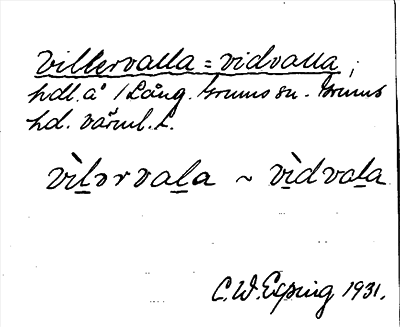 Villervalla = vidvalla,
hdl. å /Lång. Grums sn. Grums
hd. värml. l.
vìl̲ərval̲a ~ vìdval̲a
C.W. Esping 1931.